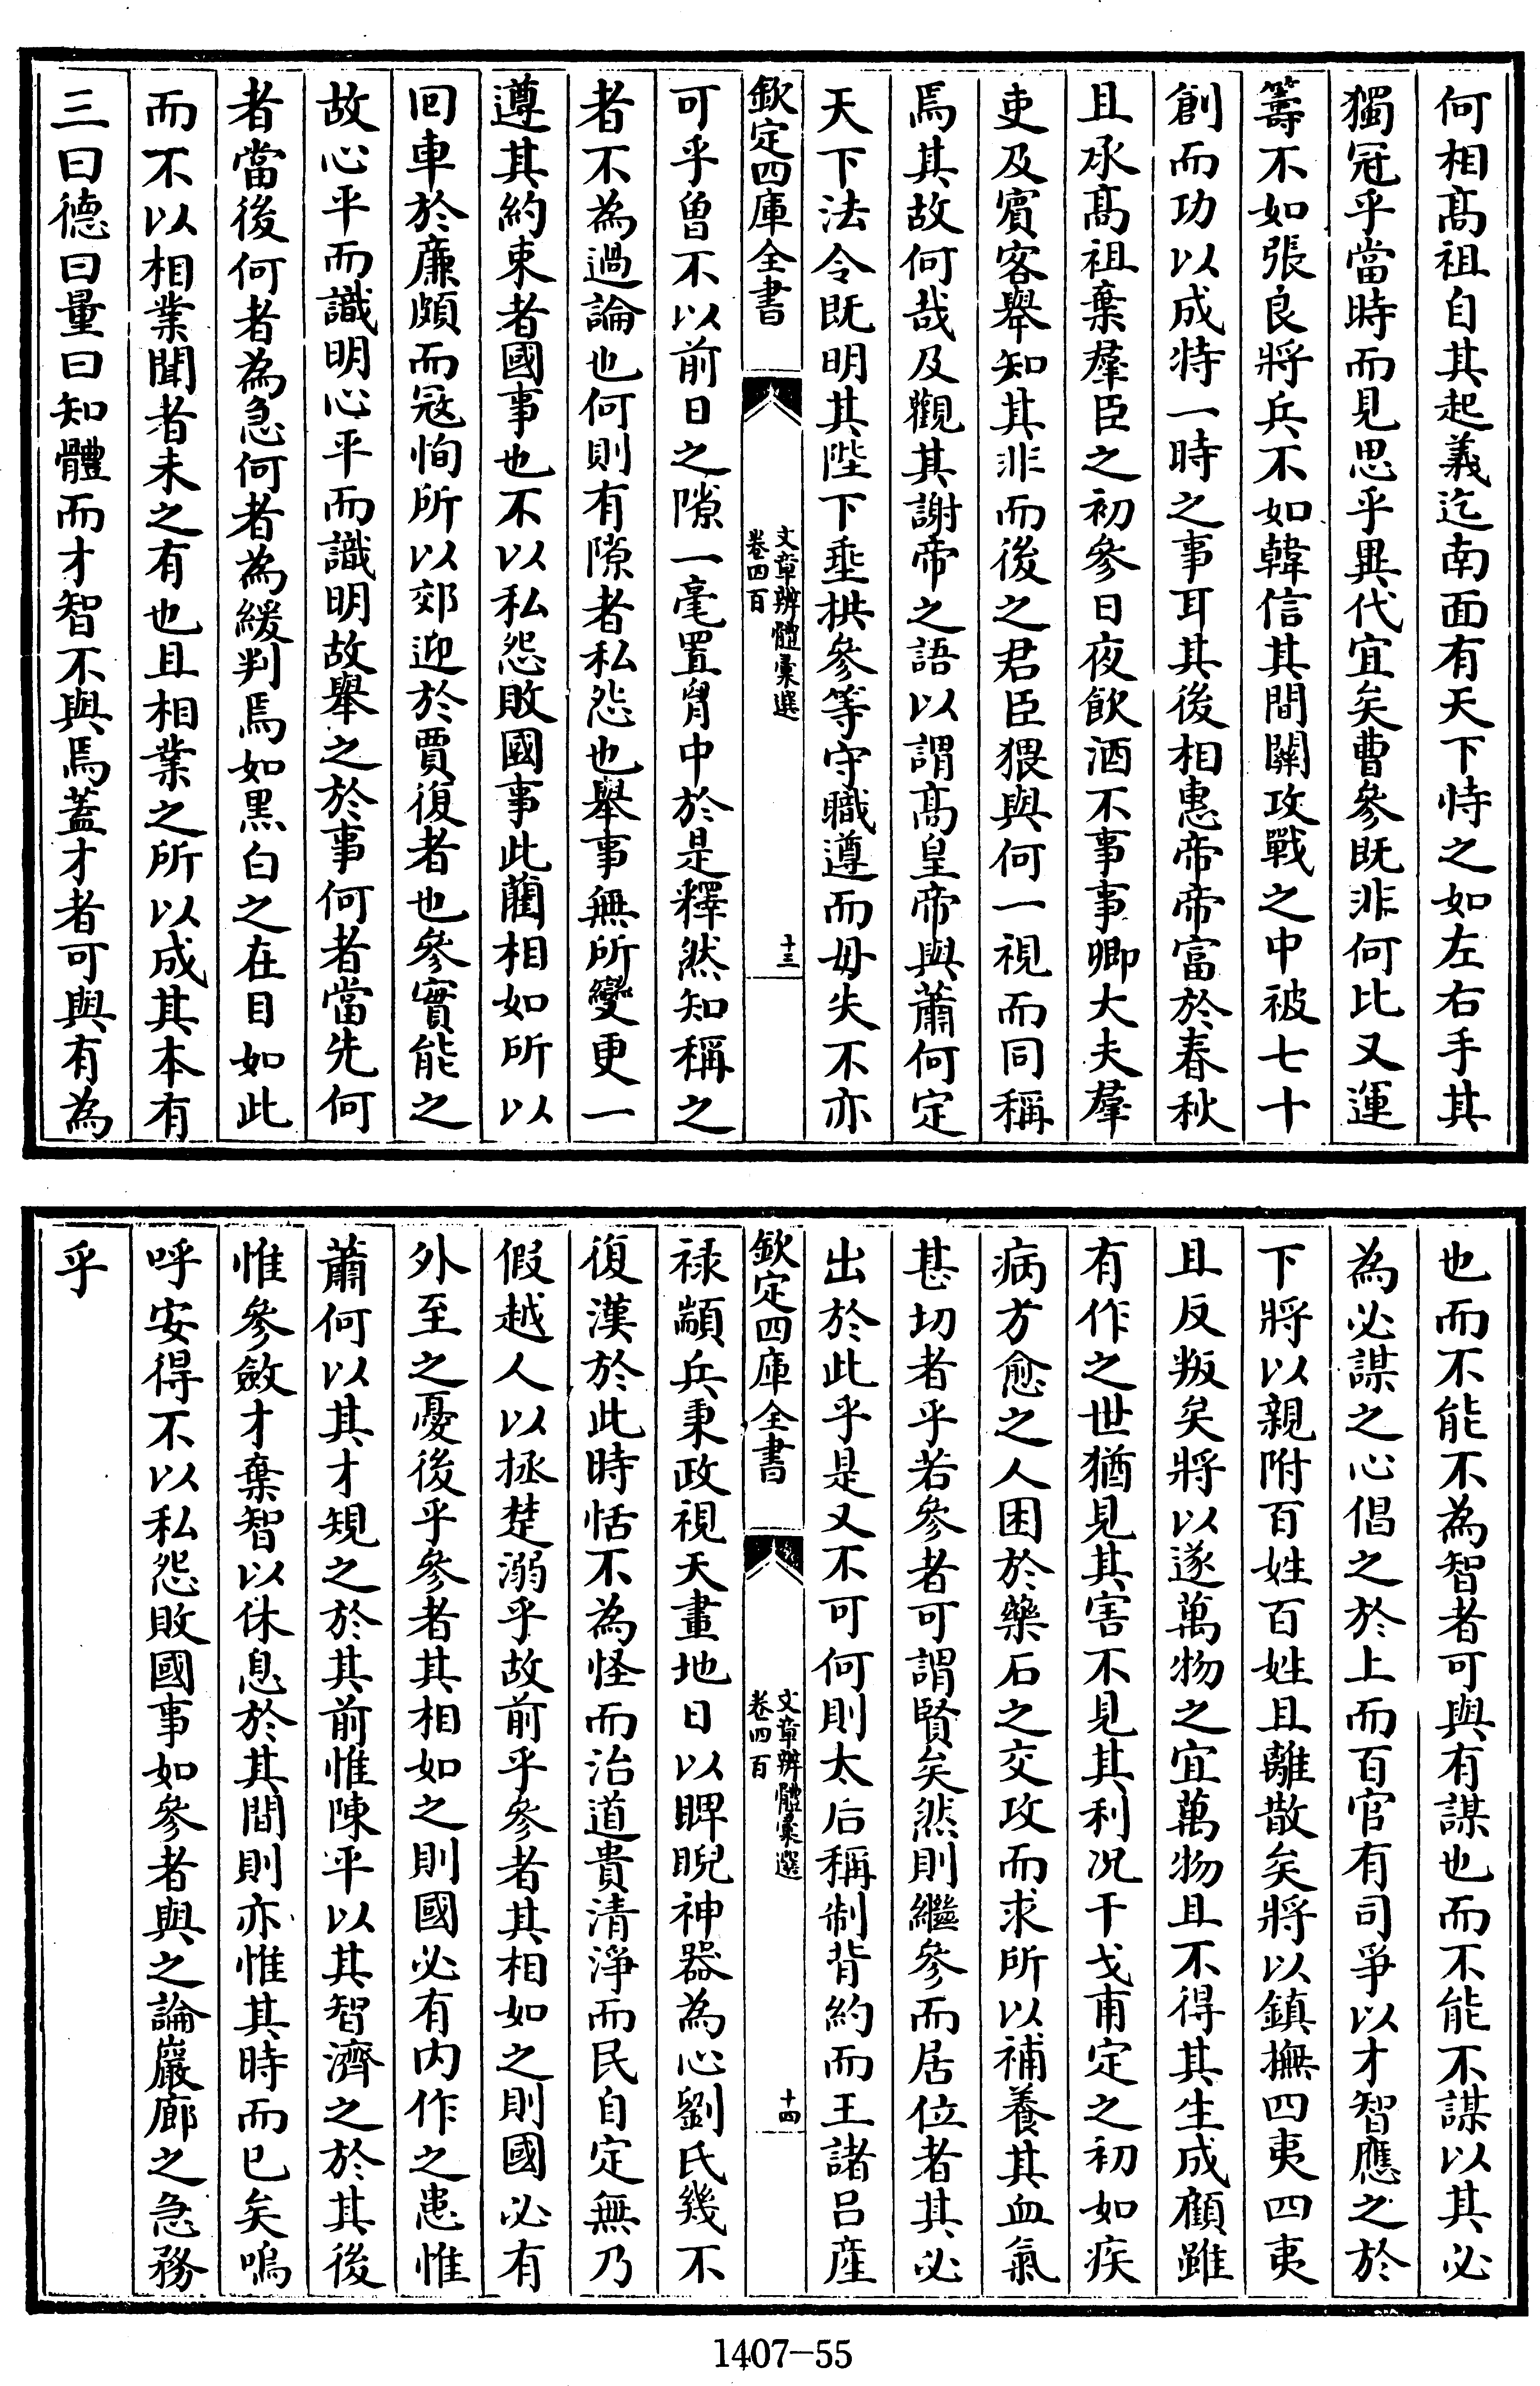 何相髙祖自其起義迄南面有天下恃之如左右手其
獨冠乎當時而見思乎異代宜矣曹參既非何比又運
籌不如張良將兵不如韓信其間關攻戰之中被七十
創而功以成特一時之事耳其後相惠帝帝富於春秋
且承髙祖棄羣臣之初參日夜飲酒不事事卿大夫羣
吏及賓客舉知其非而後之君臣猥與何一視而同稱
焉其故何哉及觀其謝帝之語以謂髙皇帝與蕭何定
天下法令既明其陛下垂拱參等守職遵而毋失不亦
欽定四庫全書
文章辨體彙選
卷四百
十三
可乎曾不以前日之隙一毫置胷中於是釋然知稱之
者不為過論也何則有隙者私怨也舉事無所變更一
遵其約束者國事也不以私怨敗國事此藺相如所以
回車於廉頗而冦恂所以郊迎於賈復者也參實能之
故心平而識明心平而識明故舉之於事何者當先何
者當後何者為急何者為緩判焉如黑白之在目如此
而不以相業聞者未之有也且相業之所以成其本有
三曰德曰量曰知體而才智不與焉蓋才者可與有為
也而不能不為智者可與有謀也而不能不謀以其必
為必謀之心倡之於上而百官有司爭以才智應之於
下將以親附百姓百姓且離散矣將以鎮撫四夷四夷
且反叛矣將以遂萬物之宜萬物且不得其生成顧雖
有作之世猶見其害不見其利况干戈甫定之初如疾
病方愈之人困於藥石之交攻而求所以補養其血氣
甚切者乎若參者可謂賢矣然則繼參而居位者其必
出於此乎是又不可何則太后稱制背約而王諸吕産
欽定四庫全書
文章辨體彙選
卷四百
十四
禄顓兵秉政視天畫地日以睥睨神器為心劉氏幾不
復漢於此時恬不為怪而治道貴清淨而民自定無乃
假越人以拯楚溺乎故前乎參者其相如之則國必有
外至之憂後乎參者其相如之則國必有内作之患惟
蕭何以其才規之於其前惟陳平以其智濟之於其後
惟參斂才棄智以休息於其間則亦惟其時而已矣嗚
呼安得不以私怨敗國事如參者與之論巖廊之急務
乎
1407-55